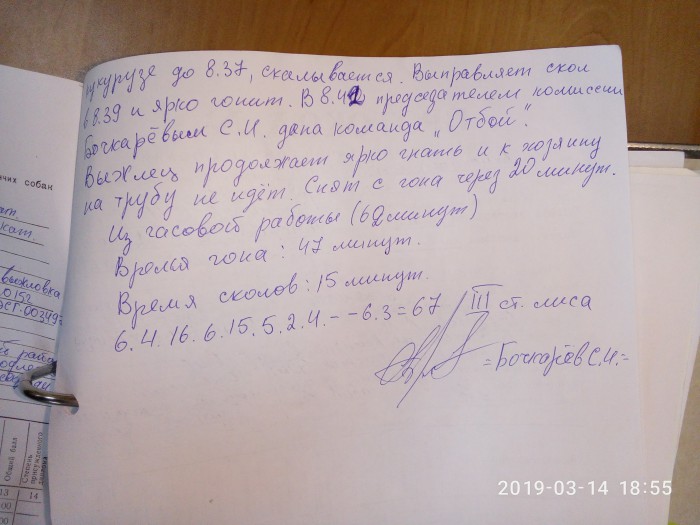 кукурузе до 8.37, скалывается. Выправляет скол
в 8.39 и ярко гонит. В 8.42 председателем комиссии
Бочкарёвым С.И. дана команда „Отбой".
Выжлец продолжает ярко гнать и к хозяину
на трубу не идёт. Снят с гона через 20 минут.
Из часовой работы (62 минут)
Время гона: 47 минут.
Время сколов: 15 минут.
6. 4. 16. 6. 15. 5. 2. 4. - - 6. 3 = 67 III ст. лиса
= Бочкарёв С.И. =
нчих собак
выжловка
Общий балл
Степень присужденного диплома
13 14
2019-03-14 18:55